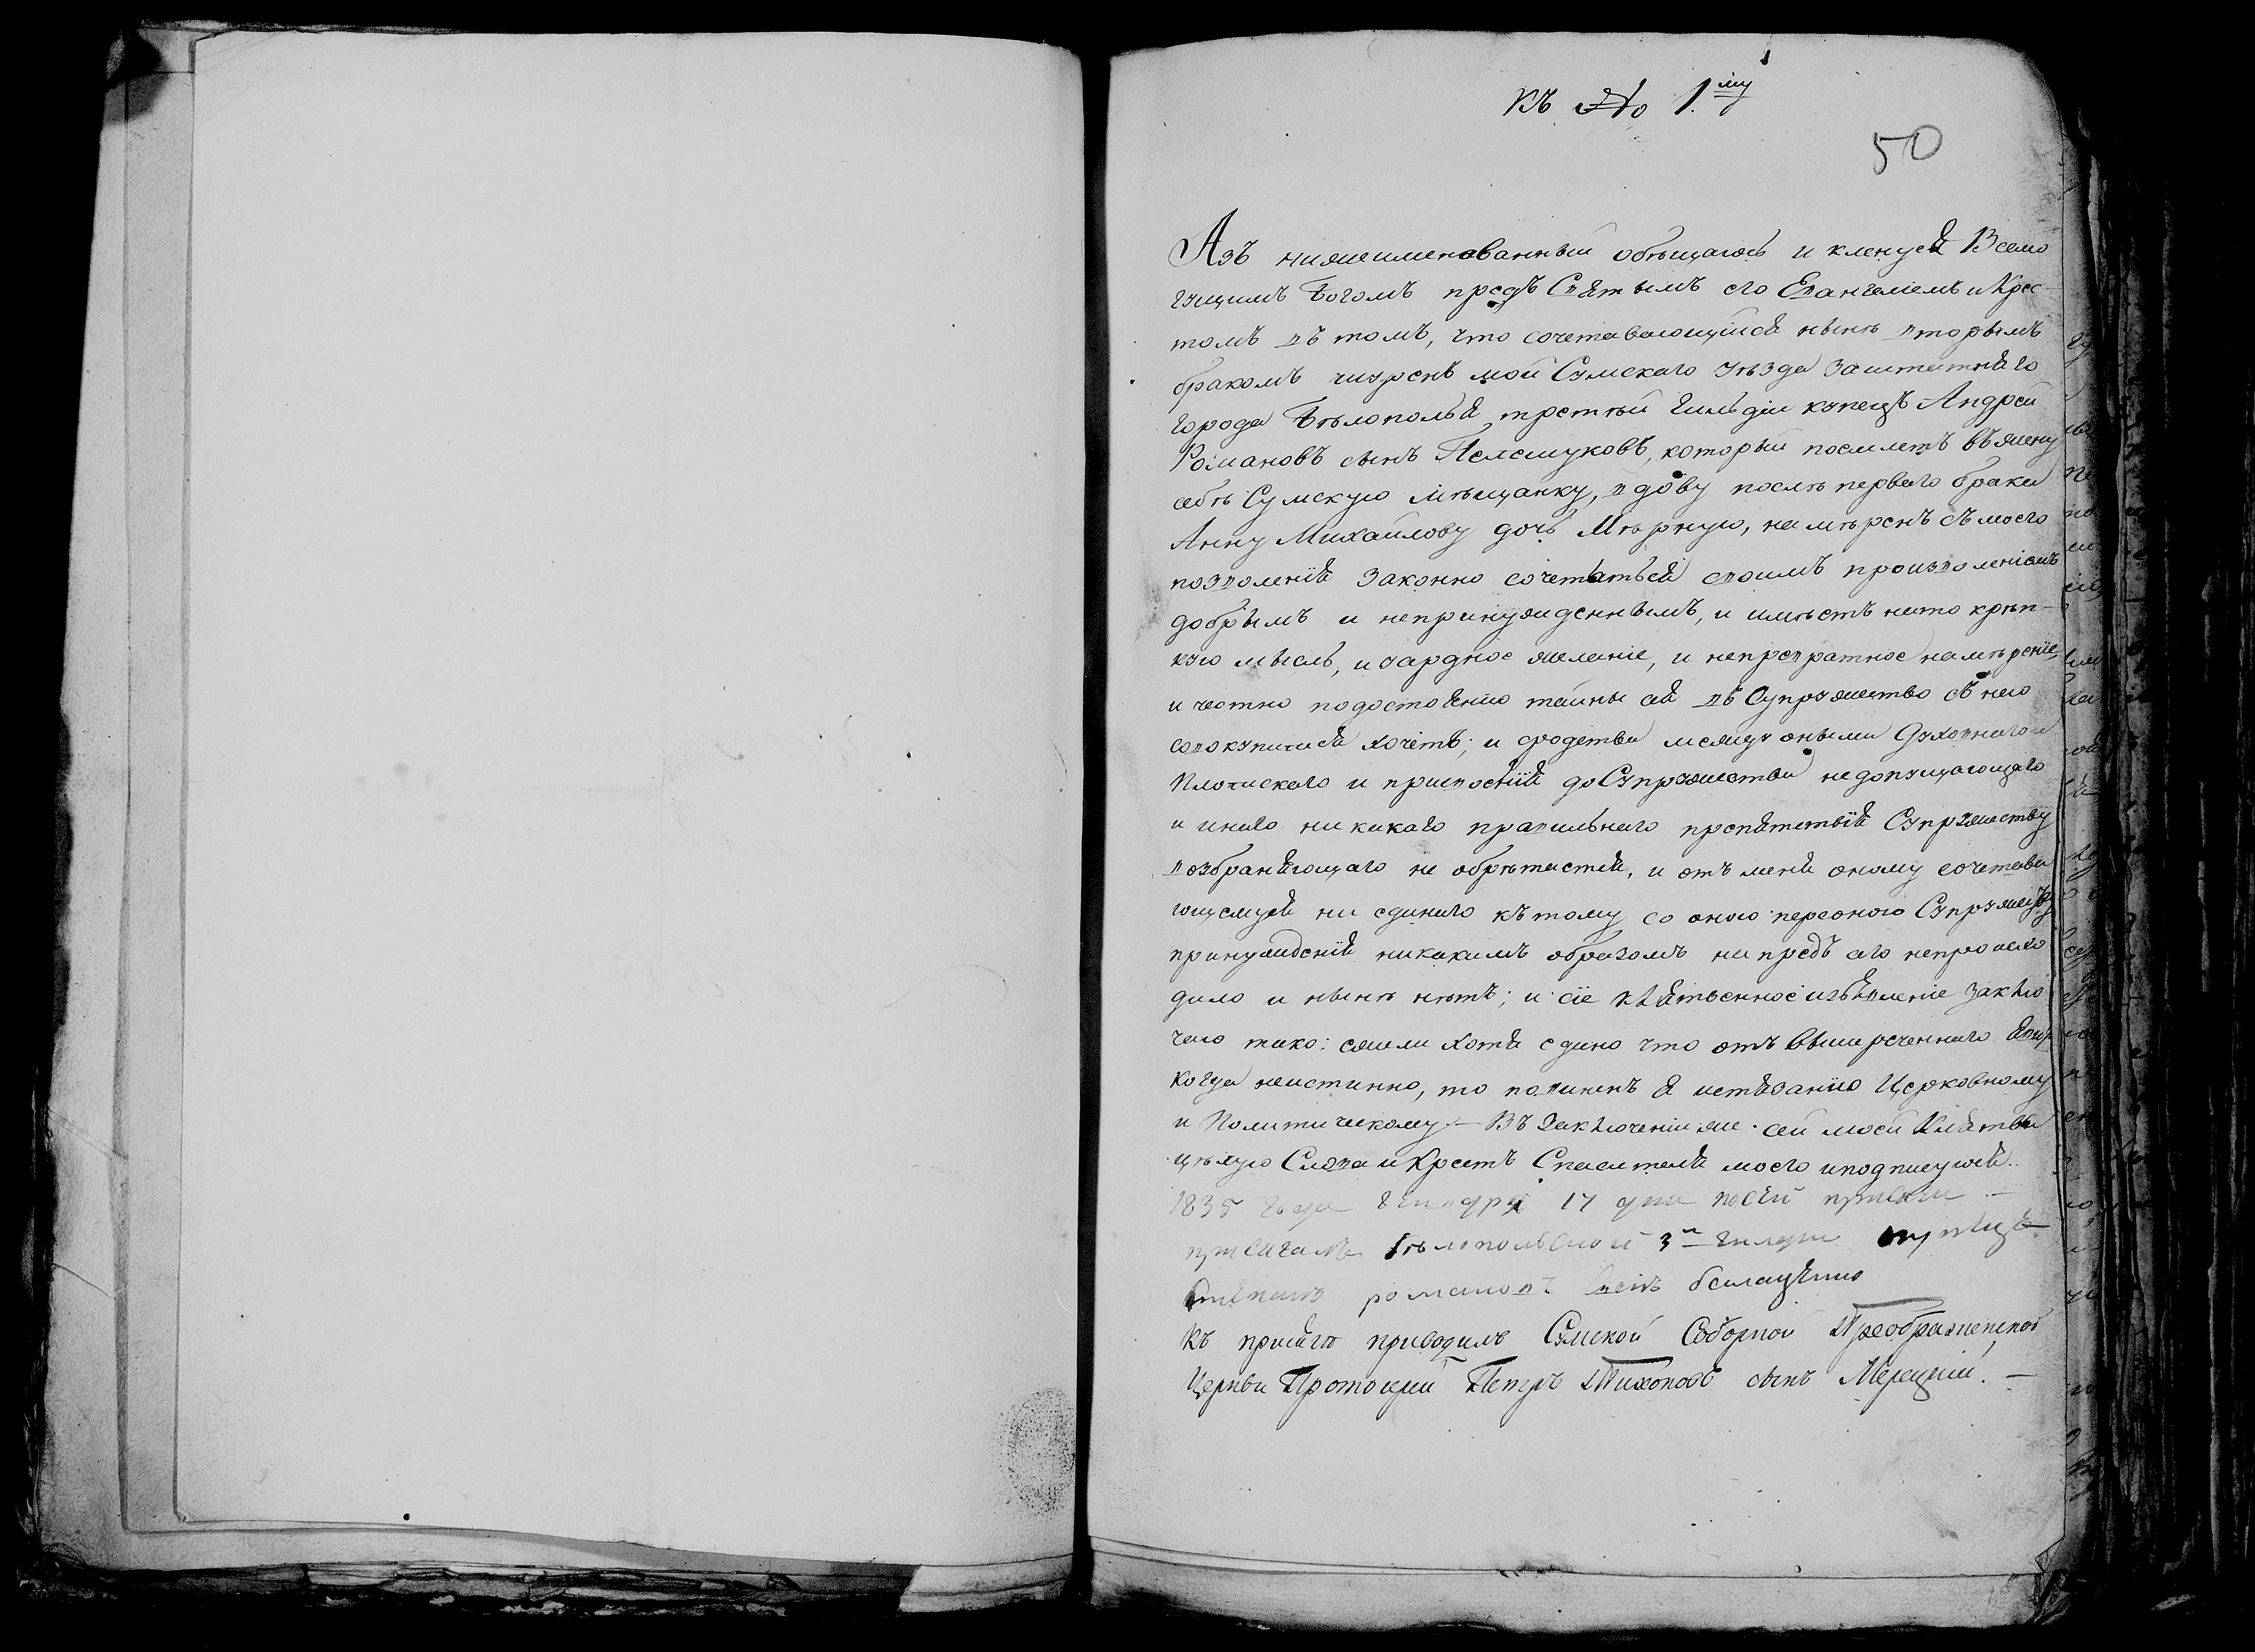 Къ № 1.му
50
Азъ нижеименованный обѣщаюсь и кленуся Всемо
гущимъ Богомъ предъ Святымъ его Евангелiемъ и Крес-
томъ въ томъ, что сочетавающiйся нынѣ вторымъ
бракомъ мой Сумскаго уѣзда Заштатняго
города Бѣлополья третьей Гильдiи купецъ Андрей
Романовъ сынъ который поемлетъ въ жену
себѣ Сумскую мѣщанку, вдову послѣ перваго брака
Анну Михайлову дочь Мѣрную, намѣренъ съ моего
позволенiя законно сочетаться своимъ произволенiемъ
добрымъ и непринужденнымъ, и имѣетъ на то крѣп-
кую мысль, и усердное желанiе, и непревратное намѣренiе,
и честно по достоянiю тайны сея въ Супружество съ нею
совокупитися хочетъ; и сродства между оными Духовнаго и
Плотскаго и присвоенiя до Супружества недопущающаго
и инаго никакаго правильнаго препятствiя Супружеству
возбраняющаго не обрѣтается, и отъ меня оному сочетава
ющемуся ни единаго къ тому со оною персоною Супружеству
принужденiя никакимъ образомъ на предъ сего непроисхо
дило и нынѣ нѣтъ; и сiе клятвенное изъявленiе заклю
чаю тако: ежели хотя едино что отъ вышереченнаго
когда неистинно, то повиненъ я истязанiю Церковному
и Политическому. — Въ заключенiи же сей моей клятвы
цѣлую Слова и Крестъ Спасителя моего и подписуюся.
1835 года Генваря 17 дня по сей присяги —
присягалъ Бѣлопольской 3й Гилдiи купецъ
романовъ сынъ
Къ присягѣ приводилъ Сумской Соборной Преображенской
Церкви Протоиерей Петръ Тихоновъ сынъ Мерецкiй. —